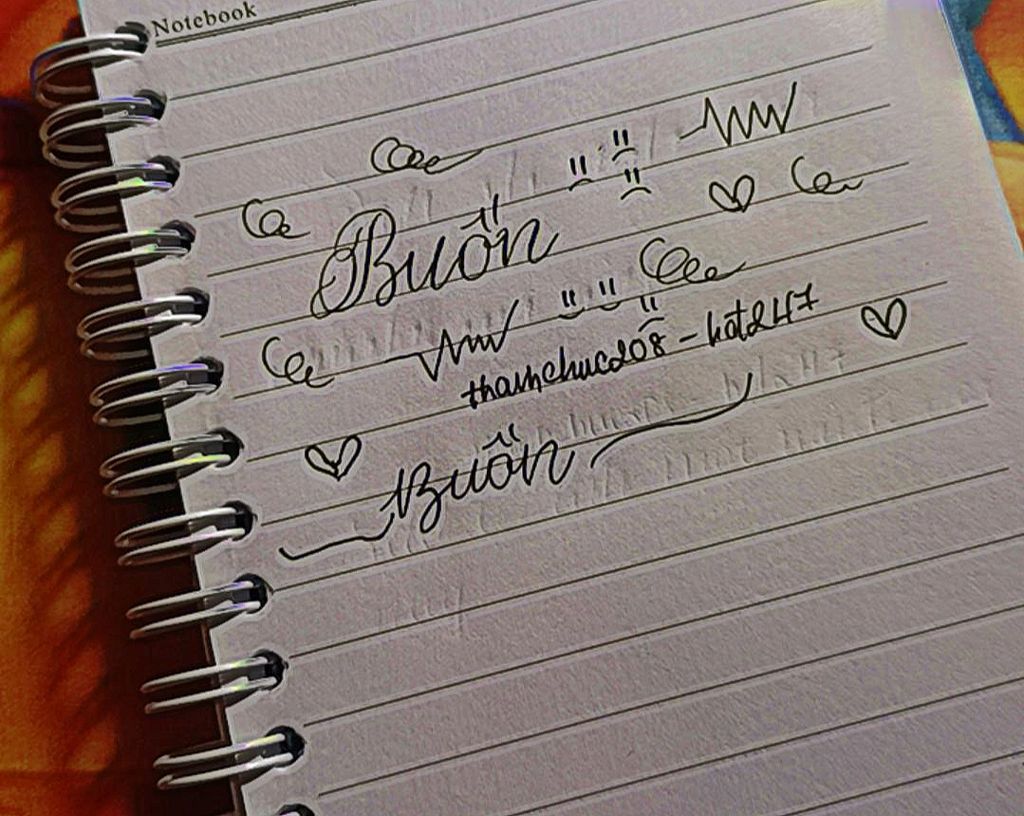 Notebook
Buồn
thanhchuc208 - hot247
Buồn